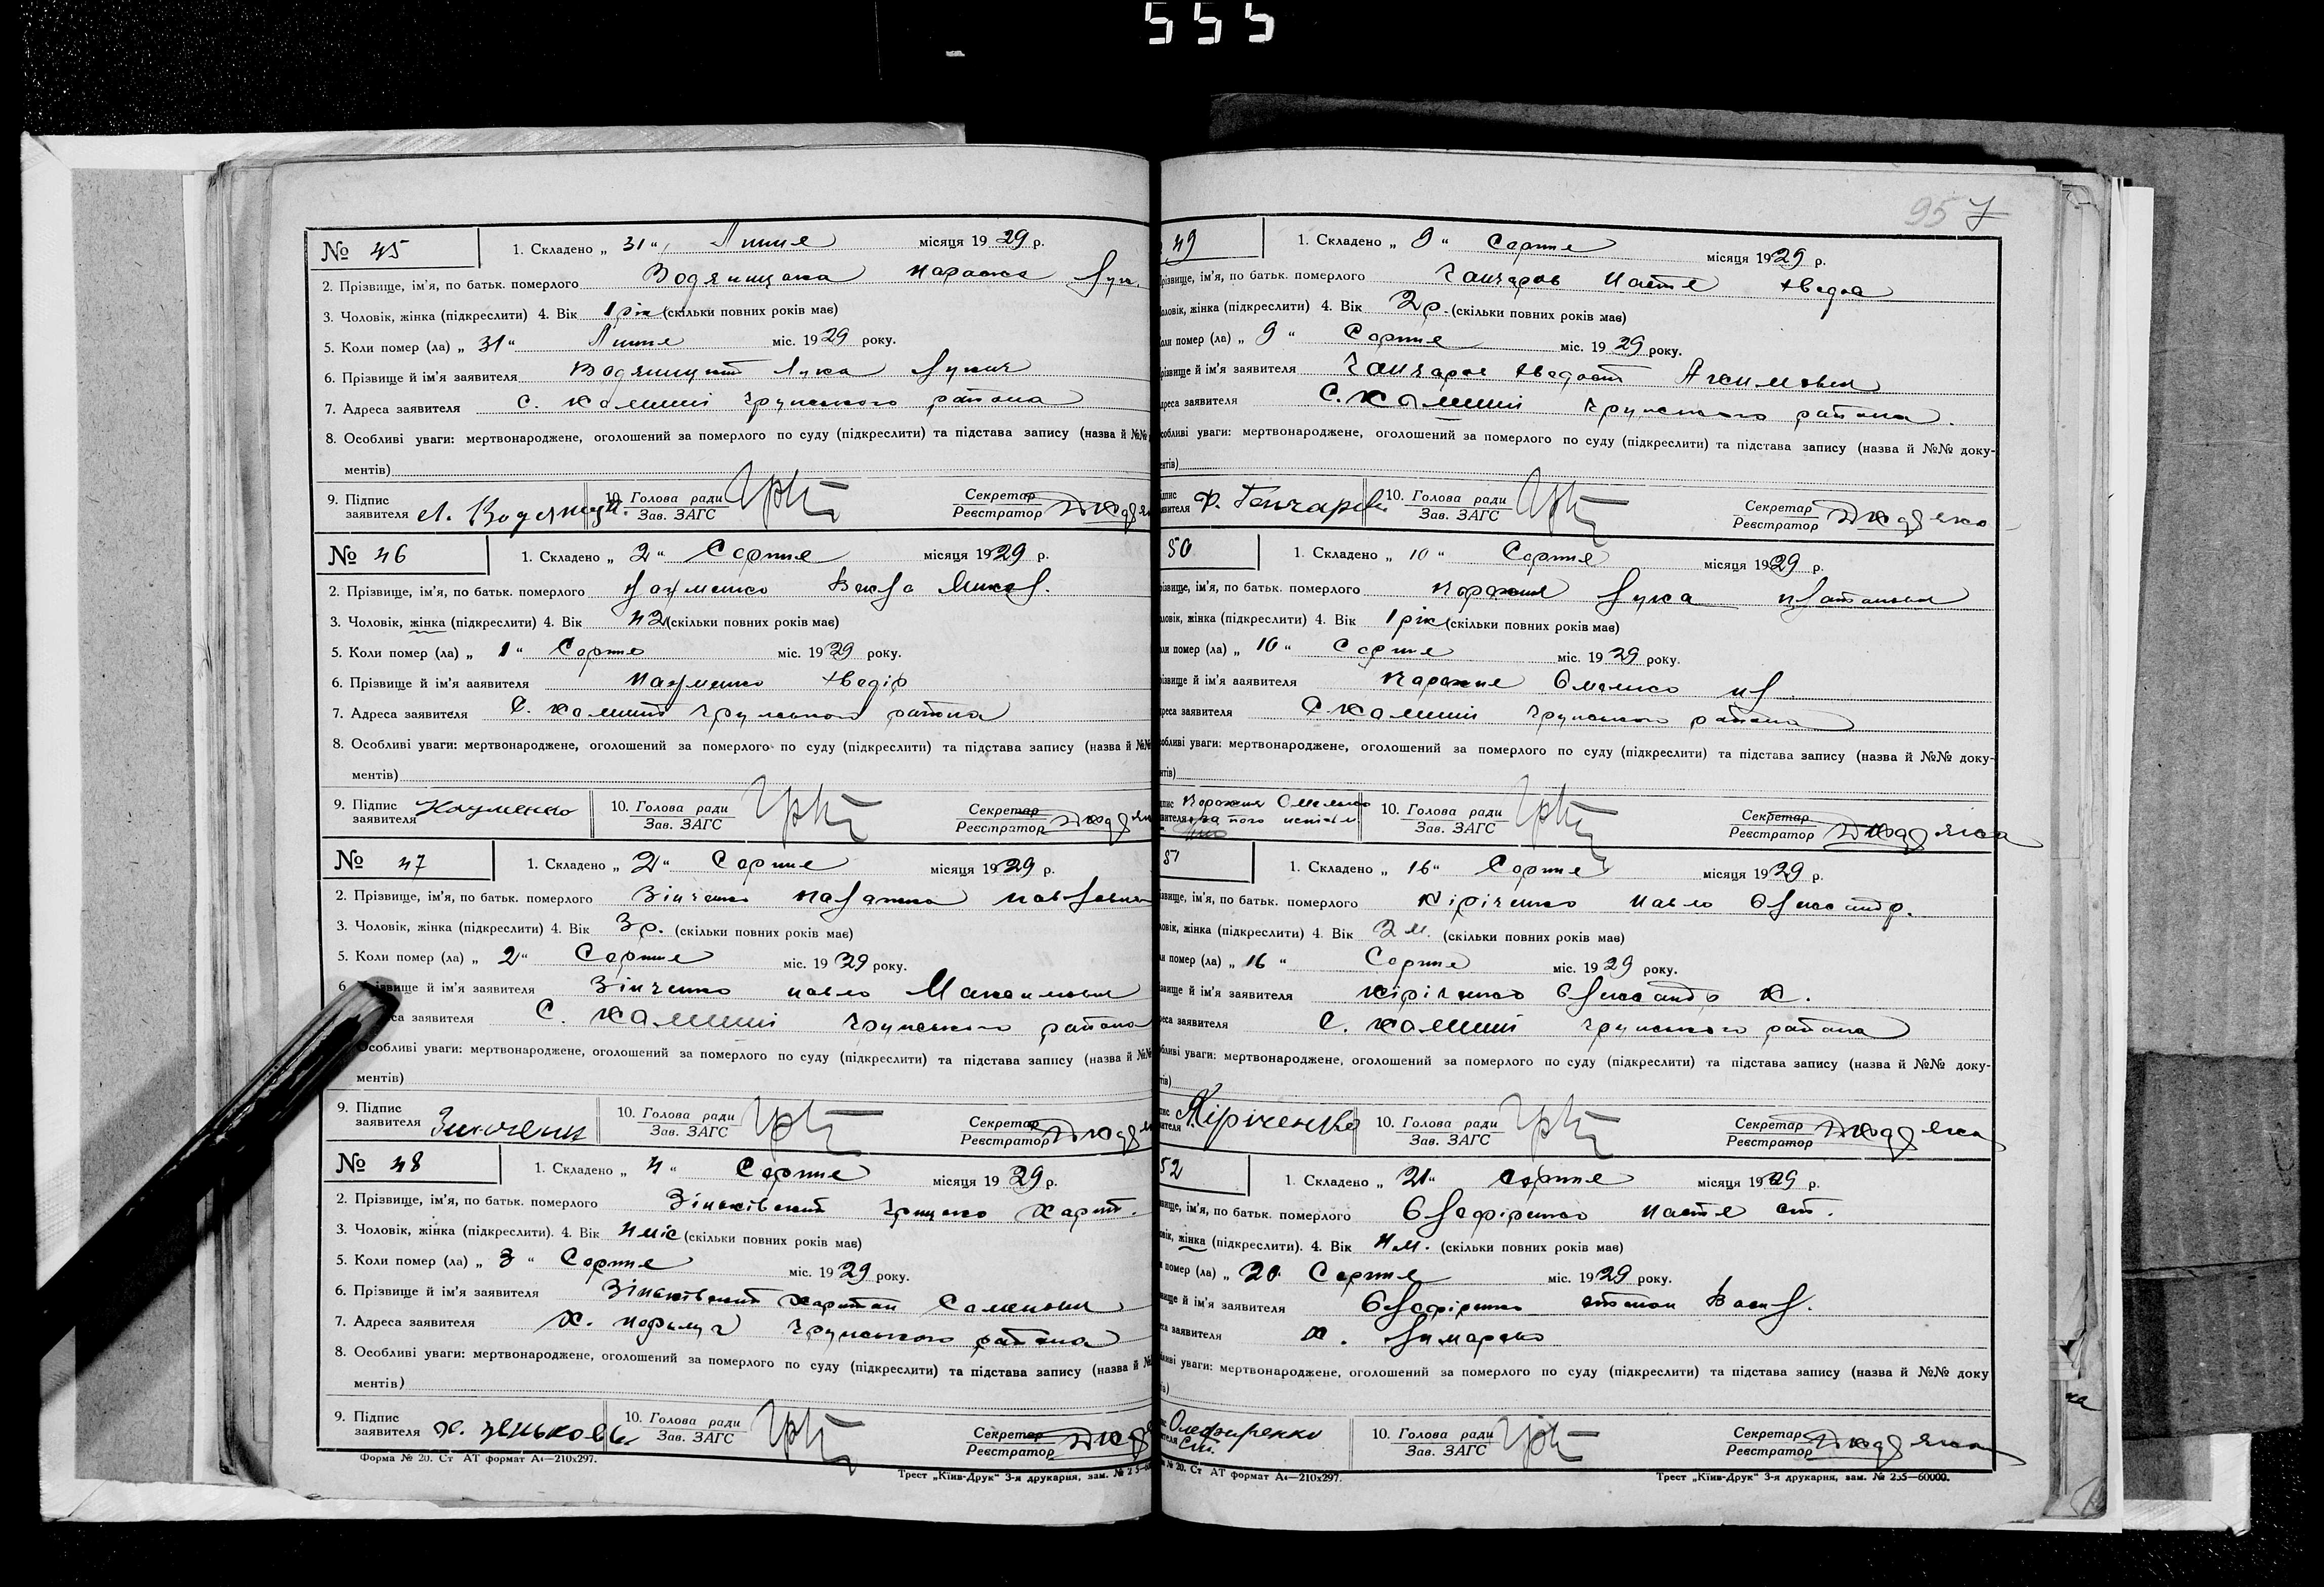 555
957
№ 45
1. Складено „ 31 “ Липня місяця 1929 р.
2. Прізвище, ім'я, по батьк. померлого Водяницька Параска Лук.
3. Чоловік, жінка (підкреслити) 4. Вік 1 рік (скільки повних років має)
5. Коли помер (ла) „ 31 “ Липня міс. 1929 року.
6. Прізвище й ім'я заявителя Водяницкий Лука Лукич
7. Адреса заявителя С. Калинні Грунського района
8. Особливі уваги: мертвонароджене, оголошений за померлого по суду (підкреслити) та підстава запису (назва й №№
ментів)
9. Підпис заявителя Л. Водяниц. 10. Голова ради Зав. ЗАГС Секретар Реєстратор
№ 46
1. Складено „ 2 “ Серпня місяця 1929 р.
2. Прізвище, ім'я, по батьк. померлого Науменко Векла Микол.
3. Чоловік, жінка (підкреслити) 4. Вік 42 (скільки повних років має)
5. Коли помер (ла) „ 1 “ Серпня міс. 1929 року.
6. Прізвище й ім'я заявителя Науменко Хведір
7. Адреса заявителя С. Калинні Грунського района
8. Особливі уваги: мертвонароджене, оголошений за померлого по суду (підкреслити) та підстава запису (назва й №№
ментів)
9. Підпис заявителя Науменко 10. Голова ради Зав. ЗАГС Секретар Реєстратор
№ 47
1. Складено „ 2 “ Серпня місяця 1929 р.
2. Прізвище, ім'я, по батьк. померлого Зінченко Палажка Павловна
3. Чоловік, жінка (підкреслити) 4. Вік 3 р. (скільки повних років має)
5. Коли помер (ла) „ 2 “ Серпня міс. 1929 року.
6. Прізвище й ім'я заявителя Зінченко Павло Максимович
заявителя С. Калинні Грунського района
Особливі уваги: мертвонароджене, оголошений за померлого по суду (підкреслити) та підстава запису (назва й №№
ментів)
9. Підпис заявителя Зинченки 10. Голова ради Зав. ЗАГС Секретар Реєстратор
№ 48
1. Складено „ 4 “ Серпня місяця 1929 р.
2. Прізвище, ім'я, по батьк. померлого Зіньківский Грицько Харит.
3. Чоловік, жінка (підкреслити). 4. Вік 4 міс (скільки повних років має)
5. Коли помер (ла) „ 3 “ Серпня міс. 1929 року.
6. Прізвище й ім'я заявителя Зіньківский Харитон Семенович
7. Адреса заявителя Х. Грунського района
8. Особливі уваги: мертвонароджене, оголошений за померлого по суду (підкреслити) та підстава запису (назва й №
ментів)
9. Підпис заявителя Х. Зеньковь 10. Голова ради Зав. ЗАГС Секретар Реєстратор
Форма № 20. Ст АТ формат А₄—210x297.
Трест „Київ-Друк“ 3-я друкарня, зам. №
49
1. Складено „ 9 “ Серпня місяця 1929 р.
ізвище, ім'я, по батьк. померлого Ганчарова Настя Хведор
оловік, жінка (підкреслити) 4. Вік 2 р. (скільки повних років має)
помер (ла) „ 9 “ Серпня міс. 1929 року.
й ім'я заявителя Ганчаров Хведост
заявителя С. Калинні Грунського района.
особливі уваги: мертвонароджене, оголошений за померлого по суду (підкреслити) та підстава запису (назва й №№ доку-
ентів)
Ф. Гончаров 10. Голова ради Зав. ЗАГС Секретар Реєстратор
50
1. Складено „ 10 “ Серпня місяця 1929 р.
ім'я, по батьк. померлого Корокия Лука
жінка (підкреслити) 4. Вік 1 рік (скільки повних років має)
помер (ла) „ 10 “ Серпня міс. 1929 року.
й ім'я заявителя Корокия Омелько
заявителя С. Калинні Грунського района
уваги: мертвонароджене, оголошений за померлого по суду (підкреслити) та підстава запису (назва й №№ доку-
Корокия Омелько за його 10. Голова ради Зав. ЗАГС Секретар Реєстратор
51
1. Складено „ 16 “ Серпня місяця 1929 р.
ім'я, по батьк. померлого Кіріченко Павло Олександр.
жінка (підкреслити) 4. Вік 2 м. (скільки повних років має)
помер (ла) „ 16 “ Серпня міс. 1929 року.
й ім'я заявителя Кіріченко Олександр К.
заявителя С. Калинні Грунського района
уваги: мертвонароджене, оголошений за померлого по суду (підкреслити) та підстава запису (назва й №№ доку-
Кіріченко 10. Голова ради Зав. ЗАГС Секретар Реєстратор
52
1. Складено „ 21 “ Серпня місяця 1929 р.
ім'я, по батьк. померлого Олефіренко Настя Ст.
жінка (підкреслити). 4. Вік 4 м. (скільки повних років має)
помер (ла) „ 20 “ Серпня міс. 1929 року.
й ім'я заявителя Олефіренко Степан Васил.
заявителя х. Лимарево
уваги: мертвонароджене, оголошений за померлого по суду (підкреслити) та підстава запису (назва й №№ доку
Олефиренко Ст. 10. Голова ради Зав. ЗАГС Секретар Реєстратор
№ 20. Ст АТ формат А₄—210x297.
Трест „Київ-Друк“ 3-я друкарня, зам. № 255—60000.